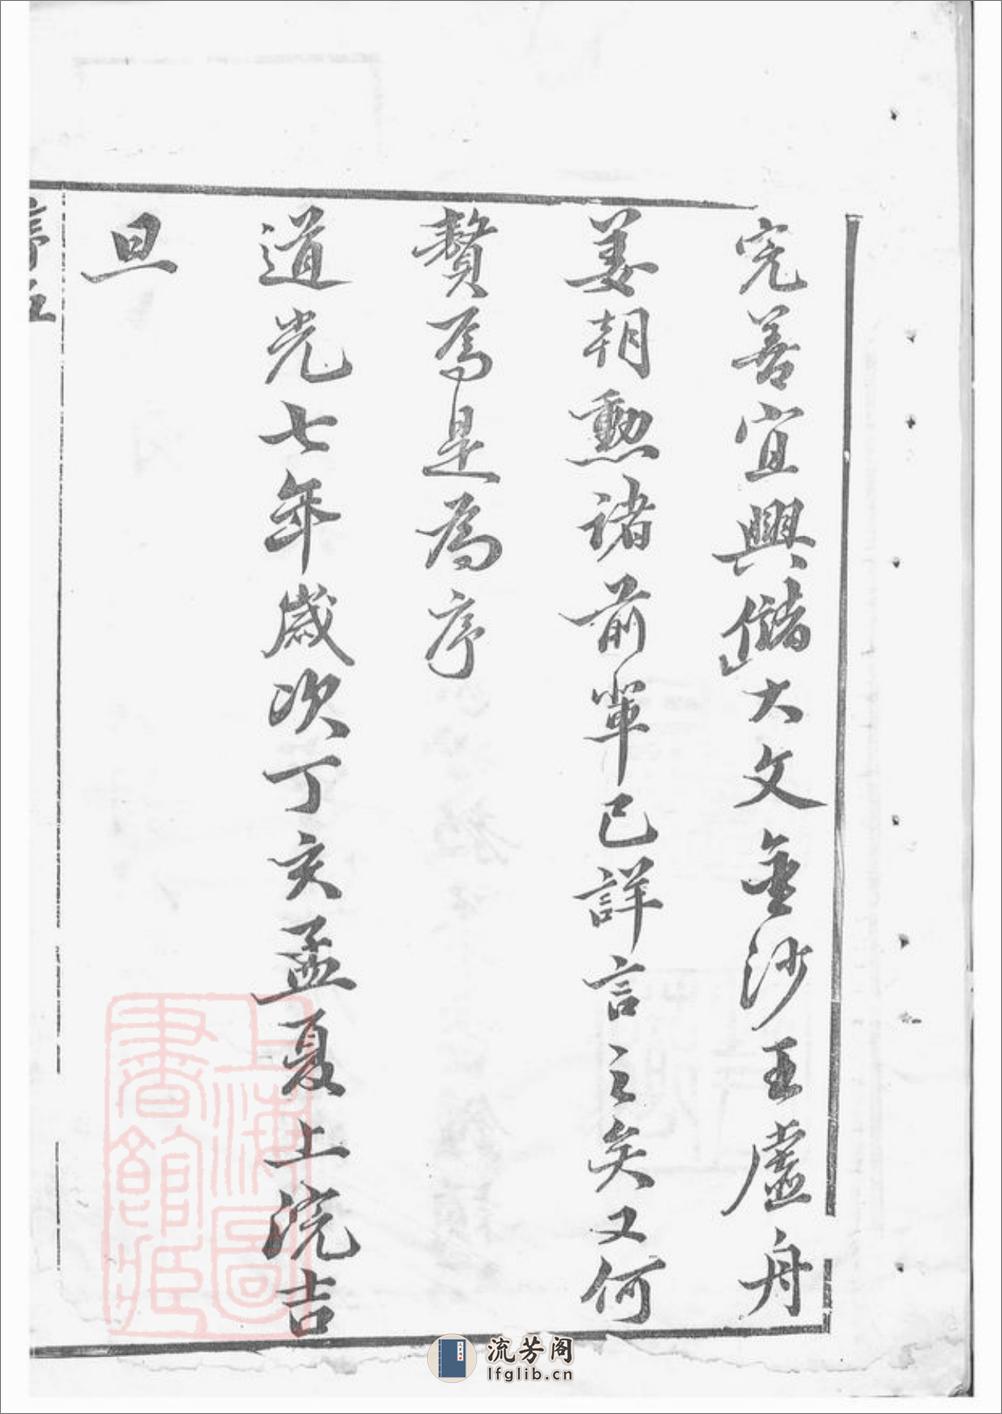 完善宜興儲大文金沙王虛舟
姜朝勳諸前輩已詳言之矣又何
贅焉是為序
道光七年歲次丁亥孟夏上浣吉
旦
序五
上海圖書館藏
流芳阁
lfglib.cn